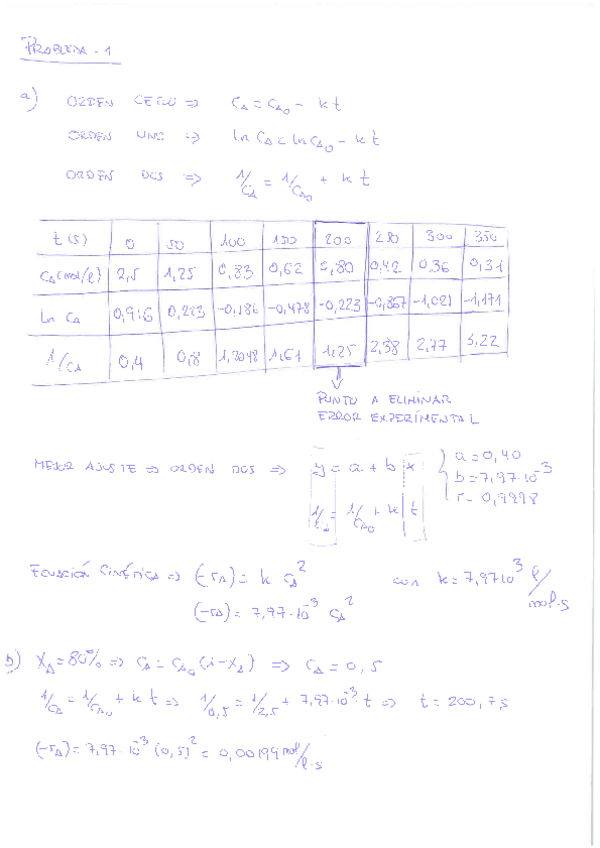 PROBLEMA - 1
a) ORDEN CERO => CA = CA0 - kt
ORDEN UNO => ln CA = ln CA0 - kt
ORDEN DOS => 1/CA = 1/CA0 + kt
t (s) 0 50 100 150 200 250 300 350
CA (mol/l) 2,5 1,25 0,83 0,62 0,80 0,42 0,36 0,31
Ln CA 0,916 0,223 -0,186 -0,478 -0,223 -0,867 -1,021 -1,171
1/CA 0,4 0,8 1,2048 1,61 1,25 2,38 2,77 3,22
PUNTO A ELIMINAR
ERROR EXPERIMENTAL
MEJOR AJUSTE => ORDEN DOS => y = a + b x
a = 0,40
b = 7,97·10^-3
r = 0,9998
1/CA = 1/CA0 + k t
ECUACIÓN CINÉTICA => (-rA) = k CA^2 con k = 7,97·10^-3 l/mol·s
(-rA) = 7,97·10^-3 CA^2
b) XA = 80% => CA = CA0 (1-XA) => CA = 0,5
1/CA = 1/CA0 + kt => 1/0,5 = 1/2,5 + 7,97·10^-3·t => t = 200,7 s
(-rA) = 7,97·10^-3 (0,5)^2 = 0,00199 mol/l·s